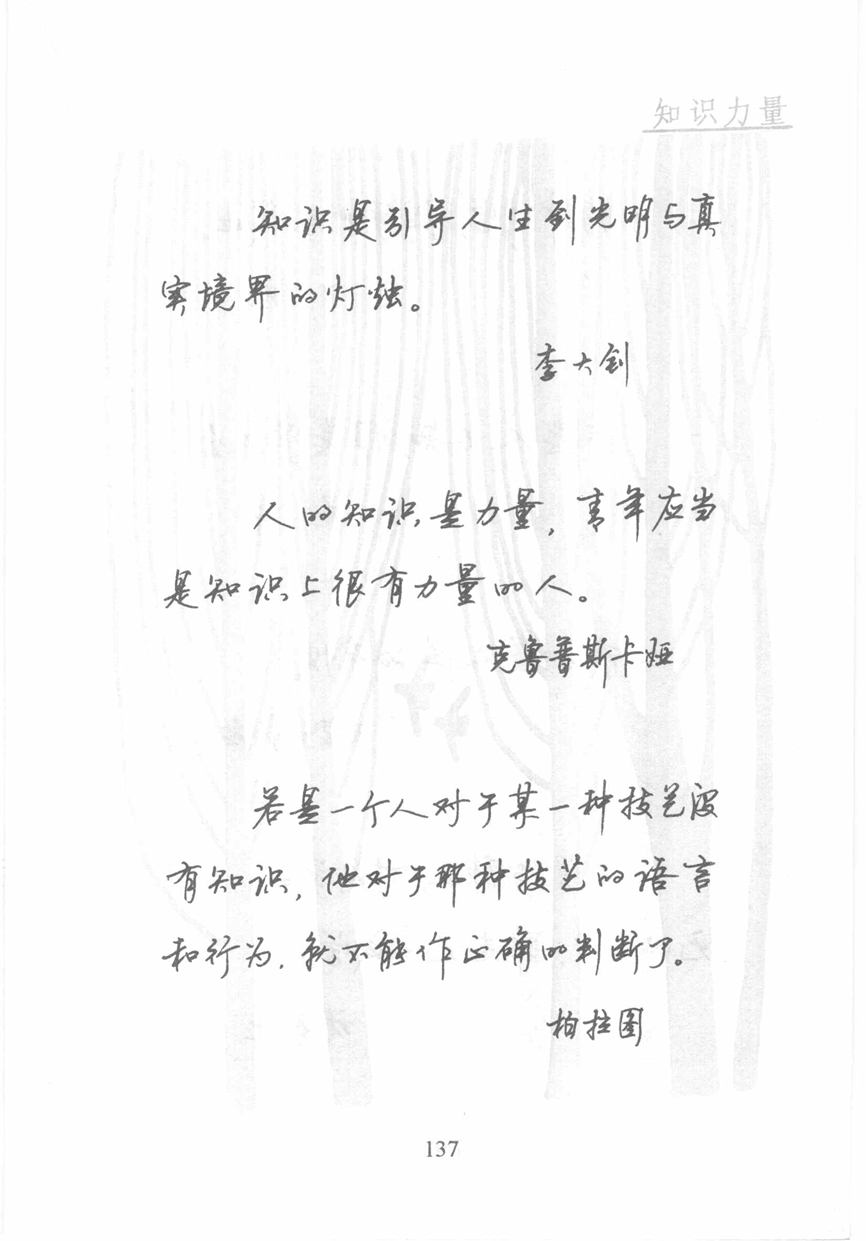 知识力量
知识是引导人生到光明与真
实境界的灯烛。
李大钊
人的知识是力量，青年应当
是知识上很有力量的人。
克鲁普斯卡娅
若是一个人对于某一种技艺没
有知识，他对于那种技艺的语言
和行为，就不能作正确的判断了。
柏拉图
137